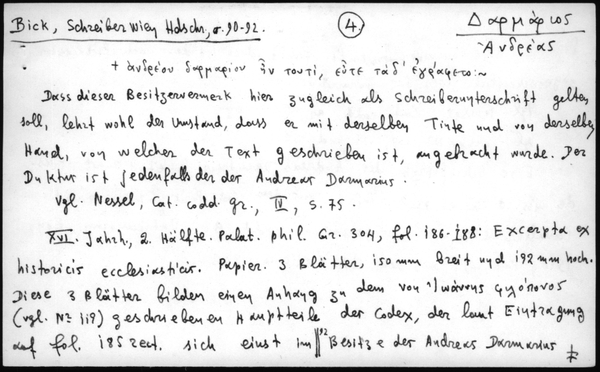 Bick, Schreiber Wien Hdschr., σ. 90-92.
4.
Δαρμάριος
Ἀνδρέας
+ ἀνδρέου δαρμαρίου ἦν τουτί, εὖτε τάδ' ἐγράφετο:~
Dass dieser Besitzervermerk hier zugleich als Schreiberunterschrift gelten
soll, lehrt wohl der Umstand, dass er mit derselben Tinte und von derselben
Hand, von welcher der Text geschrieben ist, angebracht wurde. Der
Duktus ist jedenfalls der der Andreas Darmarius.
Vgl. Nessel, Cat. codd. gr., IV, S. 75.
XVI. Jahrh., 2. Hälfte. Palat. phil. Gr. 304, fol. 186-188: Excerpta ex
historicis ecclesiasticis. Papier. 3 Blätter, 150 mm breit und 192 mm hoch.
Diese 3 Blätter bilden einen Anhang zu dem von Ἰωάννης φιλόπονος
(vgl. Nº 119) geschriebenen Hauptteile der Codex, der laut Eintragung
auf fol. 185 rect. sich einst im ||92 Besitze der Andreas Darmarius